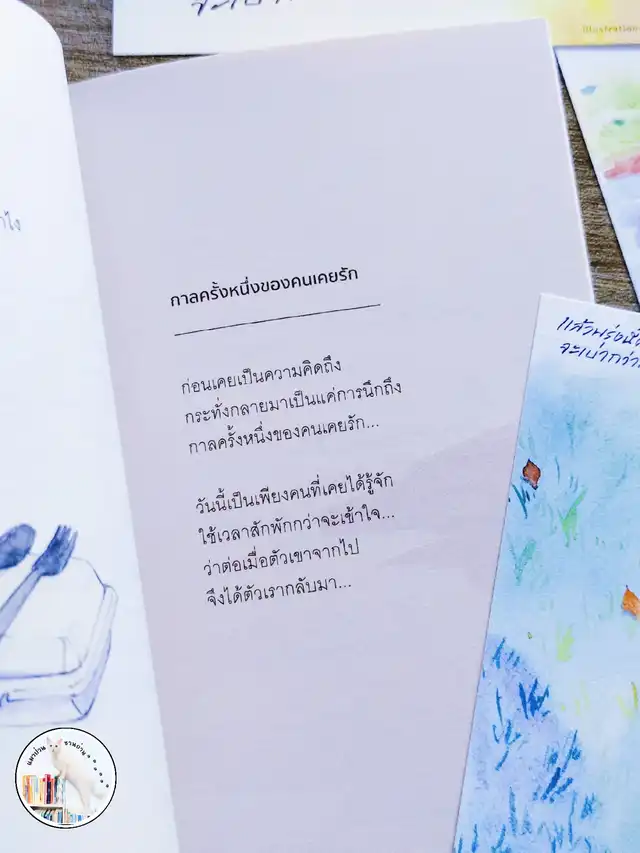 จะเบาก
illustration
กาลครั้งหนึ่งของคนเคยรัก
ก่อนเคยเป็นความคิดถึง
กระทั่งกลายมาเป็นแค่การนึกถึง
กาลครั้งหนึ่งของคนเคยรัก...
วันนี้เป็นเพียงคนที่เคยได้รู้จัก
ใช้เวลาสักพักกว่าจะเข้าใจ...
ว่าต่อเมื่อตัวเขาจากไป
จึงได้ตัวเรากลับมา...
แล้วพรุ่งนี้
จะเบากว่า